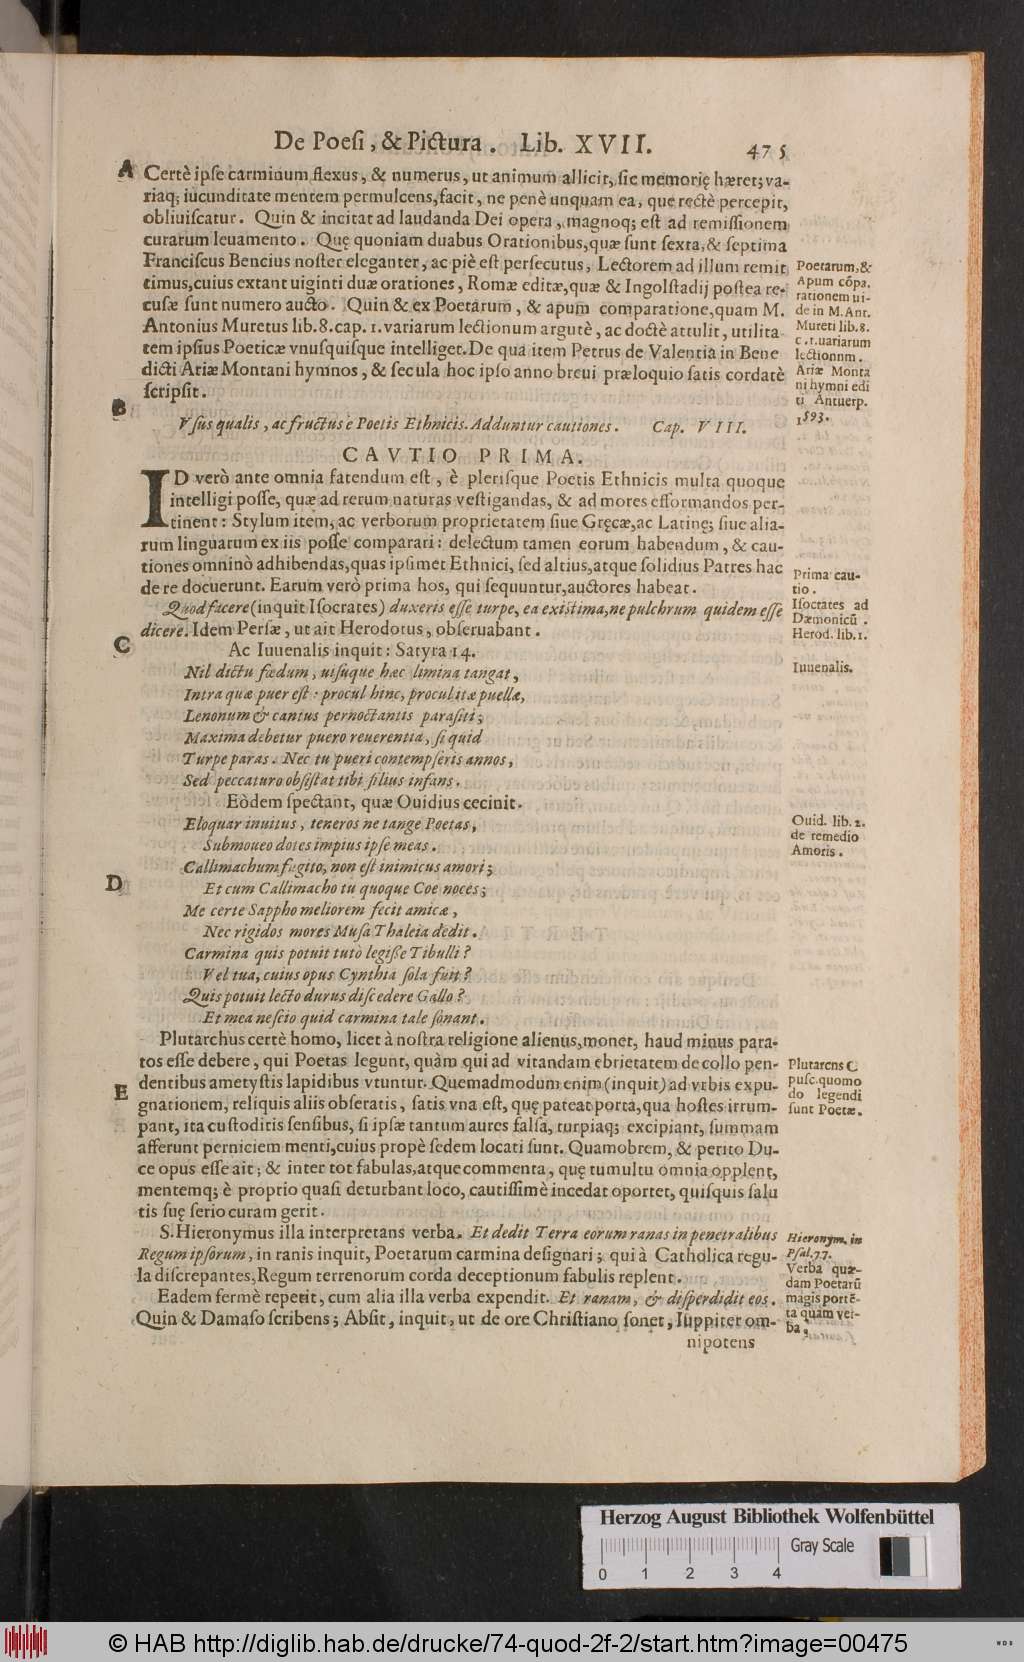 De Poesi, & Pictura. Lib. XVII. 475
A
Certè ipse carminum flexus, & numerus, ut animum allicit, sic memorię hæret; va-
riaq; iucunditate mentem permulcens, facit, ne penè unquam ea, que rectè percepit,
obliuiscatur. Quin & incitat ad laudanda Dei opera, magnoq; est ad remissionem
curarum leuamento. Quę quoniam duabus Orationibus, quæ sunt sexta, & septima
Franciscus Bencius noster eleganter, ac piè est persecutus, Lectorem ad illum remit
timus, cuius extant uiginti duæ orationes, Romæ editæ, quæ & Ingolstadij postea re-
cusæ sunt numero aucto. Quin & ex Poetarum, & apum comparatione, quam M.
Antonius Muretus lib. 8. cap. 1. variarum lectionum argutè, ac doctè attulit, utilita
tem ipsius Poeticæ vnusquisque intelliget. De qua item Petrus de Valentia in Bene
dicti Ariæ Montani hymnos, & secula hoc ipso anno breui præloquio satis cordatè
scripsit.
Poetarum, &
Apum cōpa.
rationem ui-
de in M. Ant.
Mureti lib. 8.
c. 1. uariarum
lectionnm.
Ariæ Monta
ni hymni edi
ti Antuerp.
1593.
B
Vsus qualis, ac fructus è Poetis Ethnicis. Adduntur cautiones. Cap. VIII.
CAVTIO PRIMA.
ID verò ante omnia fatendum est, è plerisque Poetis Ethnicis multa quoque
intelligi posse, quæ ad rerum naturas vestigandas, & ad mores efformandos per-
tinent: Stylum item, ac verborum proprietatem siue Gręcæ, ac Latinę; siue alia-
rum linguarum ex iis posse comparari: delectum tamen eorum habendum, & cau-
tiones omninò adhibendas, quas ipsimet Ethnici, sed altius, atque solidius Patres hac
de re docuerunt. Earum verò prima hos, qui sequuntur, auctores habeat.
Prima cau-
tio.
Quod facere (inquit Isocrates) duxeris esse turpe, ea existima, ne pulchrum quidem esse
dicere. Idem Persæ, ut ait Herodotus, obseruabant.
Isocrates ad
Dæmonicū.
Herod. lib. 1.
C
Ac Iuuenalis inquit: Satyra 14.
Iuuenalis.
Nil dictu fœdum, uisuque hæc limina tangat,
Intra quæ puer est: procul hinc, procul itæ puellæ,
Lenonum & cantus pernoctantis parasiti;
Maxima debetur puero reuerentia, si quid
Turpe paras. Nec tu pueri contempseris annos,
Sed peccaturo obsistat tibi filius infans.
Eòdem spectant, quæ Ouidius cecinit.
Ouid. lib. 2.
de remedio
Amoris.
Eloquar inuitus, teneros ne tange Poetas,
Submoueo dotes impius ipse meas.
Callimachum fugito, non est inimicus amori;
D
Et cum Callimacho tu quoque Coe noces;
Me certe Sappho meliorem fecit amicæ,
Nec rigidos mores Musa Thaleia dedit.
Carmina quis potuit tutò legisse Tibulli?
Vel tua, cuius opus Cynthia sola fuit?
Quis potuit lecto durus discedere Gallo?
Et mea nescio quid carmina tale sonant.
Plutarchus certè homo, licet à nostra religione alienus, monet, haud minus para-
tos esse debere, qui Poetas legunt, quàm qui ad vitandam ebrietatem de collo pen-
dentibus ametystis lapidibus vtuntur. Quemadmodum enim (inquit) ad vrbis expu-
gnationem, reliquis aliis obseratis, satis vna est, quę pateat porta, qua hostes irrum-
pant, ita custoditis sensibus, si ipsæ tantum aures falsa, turpiaq; excipiant, summam
afferunt perniciem menti, cuius propè sedem locati sunt. Quamobrem, & perito Du-
ce opus esse ait; & inter tot fabulas, atque commenta, quę tumultu omnia opplent,
mentemq; è proprio quasi deturbant loco, cautissimè incedat oportet, quisquis salu
tis suę serio curam gerit.
Plutarens C
pusc. quomo
do legendi
sunt Poetæ.
E
S. Hieronymus illa interpretans verba. Et dedit Terra eorum ranas in penetralibus
Regum ipsorum, in ranis inquit, Poetarum carmina designari; qui à Catholica regu-
la discrepantes, Regum terrenorum corda deceptionum fabulis replent.
Eadem fermè repetit, cum alia illa verba expendit. Et ranam, & disperdidit eos.
Quin & Damaso scribens; Absit, inquit, ut de ore Christiano sonet, Iuppiter om-
nipotens
Hieronym. in
Psal. 77.
Verba quæ-
dam Poetarū
magis portē-
ta quàm ver-
ba;
Herzog August Bibliothek Wolfenbüttel
Gray Scale
0 1 2 3 4
© HAB http://diglib.hab.de/drucke/74-quod-2f-2/start.htm?image=00475